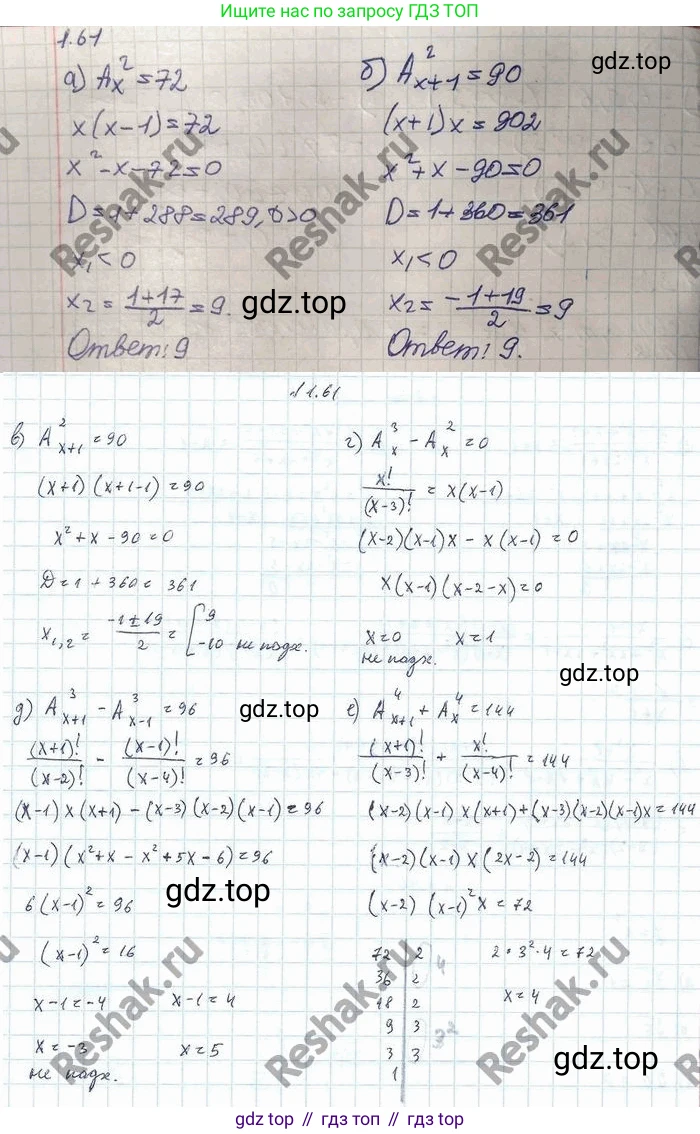 Поиск по запросу ГДЗ ТОП
1.61
а) A_x^2 = 72
x(x-1)=72
x^2-x-72=0
D=1+288=289, D>0
x_1<0
x_2 = (1+17)/2 = 9.
Ответ: 9
б) A_{x+1}^2 = 90
(x+1)x=902
x^2+x-90=0
D=1+360=361
x_1<0
x_2 = (-1+19)/2 = 9
Ответ: 9.
gdz.top
gdz.top
gdz.top
Reshak.ru
Reshak.ru
Reshak.ru
1.61
в) A_{x+1}^2 = 90
(x+1)(x+1-1)=90
x^2+x-90=0
D=1+360=361
x_{1,2} = (-1±19)/2 = [9
-10 не подх.
г) A_x^3 - A_x^2 = 0
x!/(x-3)! = x(x-1)
(x-2)(x-1)x - x(x-1) = 0
x(x-1)(x-2-x)=0
x=0 x=1
не подх.
gdz.top
д) A_{x+1}^3 - A_{x-1}^3 = 96
(x+1)!/(x-2)! - (x-1)!/(x-4)! = 96
(x-1)x(x+1) - (x-3)(x-2)(x-1) = 96
(x-1)(x^2+x-x^2+5x-6)=96
6(x-1)^2=96
(x-1)^2=16
x-1=-4 x-1=4
x=-3 x=5
не подх.
gdz.top
gdz.top
е) A_{x+1}^4 + A_x^4 = 144
(x+1)!/(x-3)! + x!/(x-4)! = 144
(x-2)(x-1)x(x+1)+(x-3)(x-2)(x-1)x=144
(x-2)(x-1)x(2x-2)=144
(x-2)(x-1)^2x=72
72 2
36 2
18 2
9 3
3 3
1
2·3^2·4=72
x=4
gdz.top
Reshak.ru
Reshak.ru
Reshak.ru
gdz top // гдз топ // gdz.top